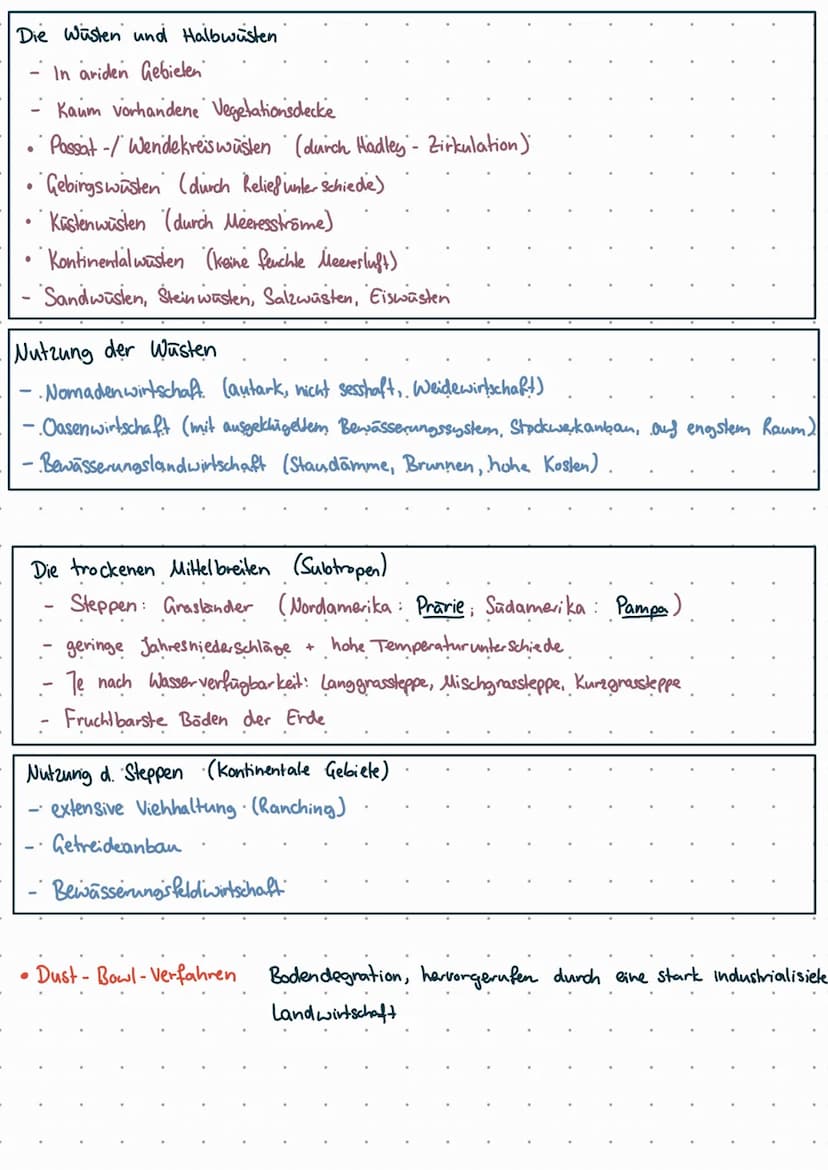 Die Wüsten und Halbwüsten
- In ariden Gebieten
- Kaum vorhandene Vegetationsdecke
• Passat-/ Wendekreiswüsten (durch Hadley-Zirkulation)
• Gebirgswüsten (durch Reliefunterschiede)
• Küstenwüsten (durch Meeresströme)
• Kontinentalwüsten (keine feuchte Meeresluft)
- Sandwüsten, Steinwüsten, Salzwüsten, Eiswüsten
Nutzung der Wüsten
- Nomadenwirtschaft (autark, nicht sesshaft, Weidewirtschaft)
- Oasenwirtschaft (mit ausgeklügeltem Bewässerungssystem, Stockwekanbau, auf engstem Raum)
- Bewässerungslandwirtschaft (Staudämme, Brunnen, hohe Kosten)
Die trockenen Mittelbreiten (Subtropen)
- Steppen: Grasländer (Nordamerika: Prärie, Südamerika: Pampa)
- geringe Jahresniederschläge + hohe Temperaturunterschiede
- Je nach Wasserverfügbarkeit: Langgrassteppe, Mischgrassteppe, Kurzgrassteppe
- Fruchtbarste Böden der Erde
Nutzung d. Steppen (Kontinentale Gebiete)
- extensive Viehhaltung (Ranching)
- Getreideanbau
- Bewässerungsfeldwirtschaft
• Dust-Bowl-Verfahren Bodendegration, hervorgerufen durch eine stark industrialisiete
Landwirtschaft